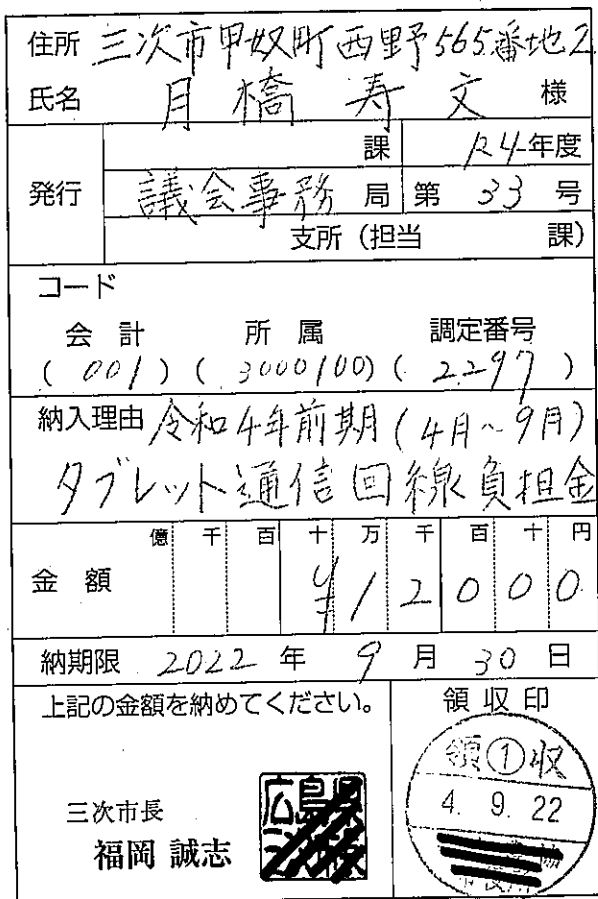 住所 三次市甲奴町西野565番地2
氏名 月橋寿文 様
課 R4年度
発行 議会事務局 第 33 号
支所(担当 課)
コード
会計 所属 調定番号
(001) (3000100) (2297)
納入理由 令和4年前期(4月~9月)
タブレット通信回線負担金
億 千 百 十 万 千 百 十 円
金額 ¥12000
納期限 2022 年 9 月 30 日
上記の金額を納めてください。
領収印
領①収
4. 9. 22
三次市長
福岡 誠志
広島県